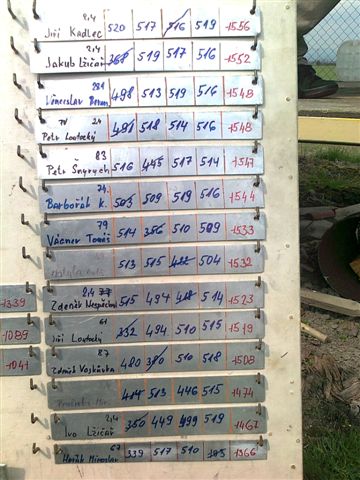 214
Jiří Kadlec 520 517 516 519 1556
214
Jakub Lžičař 368 519 517 516 1552
281
498 513 519 516 1548
74 24
Petr Loutocký 491 518 514 516 1548
83
Petr Šnyrych 516 445 517 514 1547
74
Barborák K. 503 509 519 516 1544
79
Vácner Tomáš 514 356 510 509 1533
513 515 504 1532
214 77
Zdeněk Nespěchal 515 494 514 1523
1339
61
Jiří Loutocký 332 494 510 515 1519
1089
87
Zdeněk Voskávka 480 510 518 1508
1041
414 513 446 515 1474
214
Ivo Lžičař 350 449 499 519 1467
67
Horák Miroslav 339 517 510 1366